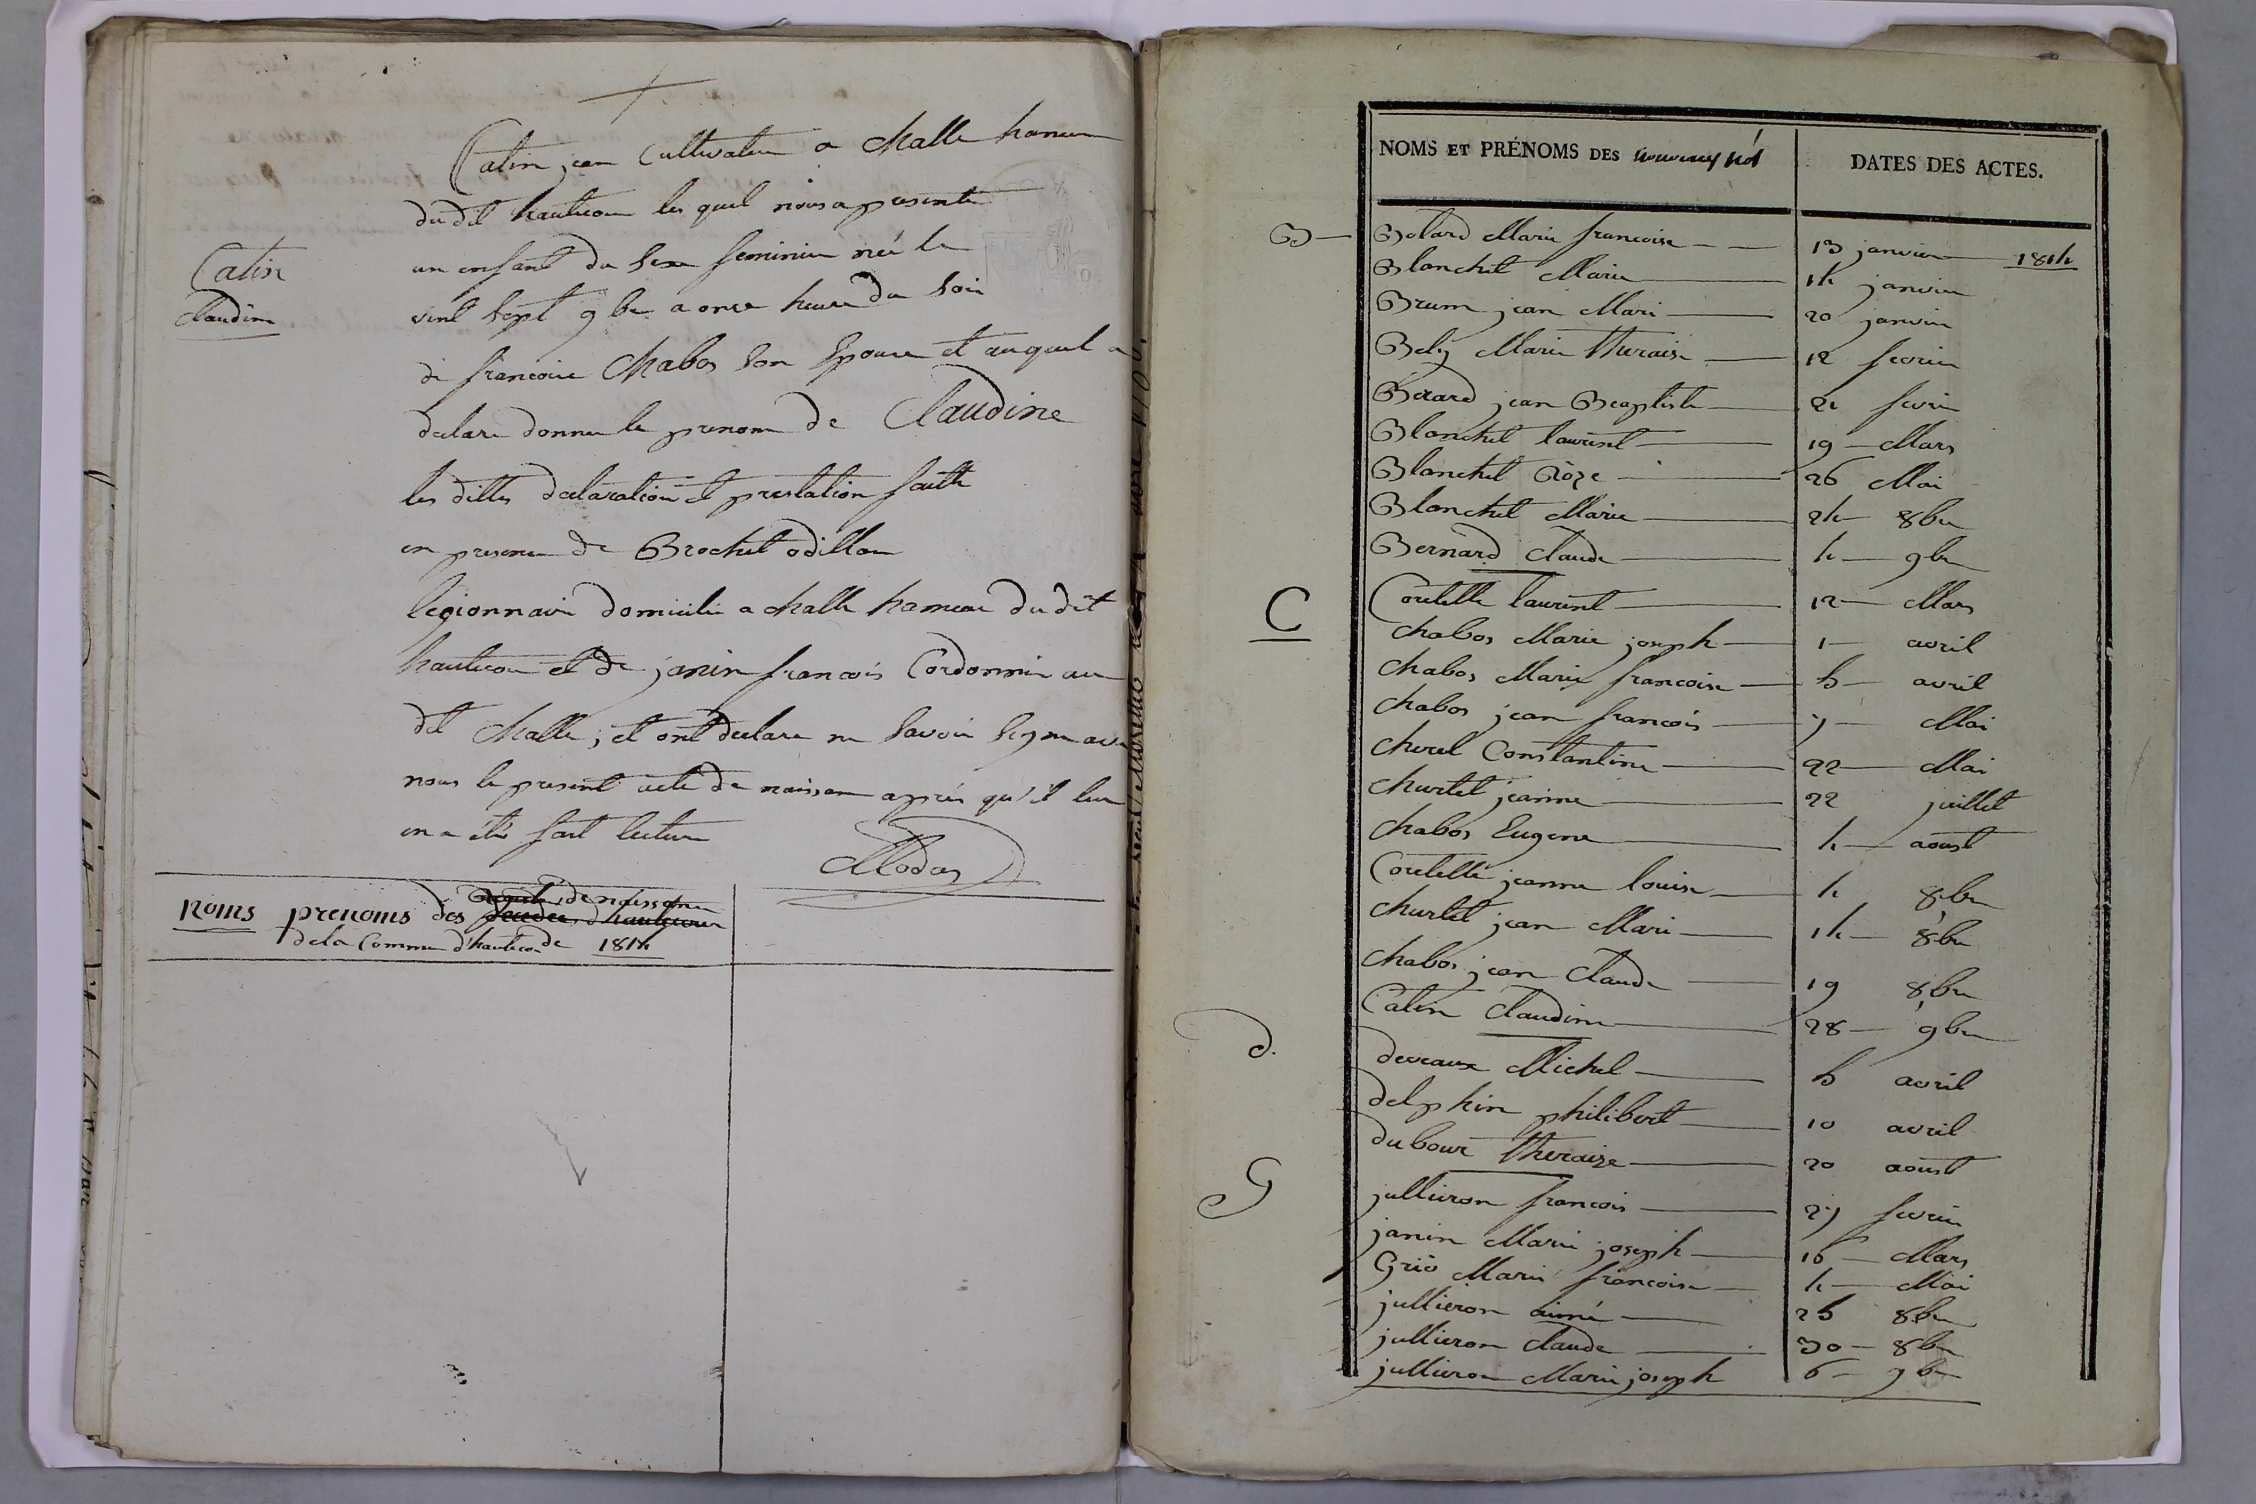 Catin jean Cultivateur a Challe hameau
du dit hautecour les quel nous a presenté
un enfant du sexe feminin née le
Catin
Claudine
vint sept 9bre a onze heure du soir
de francoise Chabos son Epouse et auquel a
declare donner le prenom de Claudine
les dittes declaration et prestation faitte
en presence de Brochet odillon
legionnaire domicilie a Challe hameau du dit
hautecour et de janin francois Cordonnier au
dit Challe, et ont declare ne savoir signe avec
nous le present acte de naissance après qu'il leur
en a été fait lecture
Modas
Noms prenoms des de naissance
de la Commune d'hautecour de 1814
NOMS ET PRÉNOMS DES nouveaux nés
DATES DES ACTES.
B
Bolard Marie francoise 13 janvier 1814
Blanchet Marie 14 janvier
Brum jean Marie 20 janvier
Bely Marie theraise 12 fevrier
Berard jean Baptiste 21 fevrier
Blanchet laurent 19 Mars
Blanchet Roze 26 Mai
Blanchet Marie 24 8bre
Bernard Claude 4 9bre
C
Coutelle laurent 12 Mars
Chabos Marie joseph 1 avril
Chabos Marie francoise 5 avril
Chabos jean francois 7 Mai
Churel Constantine 22 Mai
Churtet jeanne 22 juillet
Chabos Eugene 4 aoust
Coutelle jeanne louise 4 8bre
Churtet jean Marie 14 8bre
Chabos jean Claude 19 8bre
Catin Claudine 28 9bre
d.
devraux Michel 5 avril
delphin philibert 10 avril
dubour theraize 20 aoust
G
jullieron francois 27 fevrier
janin Marie joseph 16 Mars
Grio Marie francoise 4 Mai
jullieron aimé 25 8bre
jullieron Claude 30 8bre
jullieron Marie joseph 6 9bre